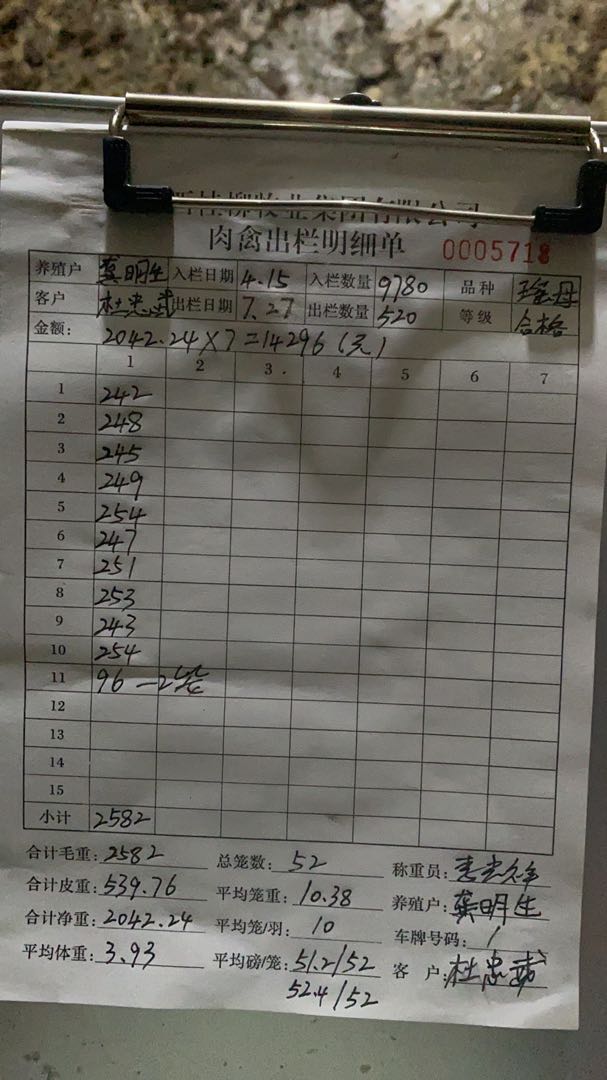 桂柳牧业集团有限公司
肉禽出栏明细单 0005718
养殖户 龚明生 入栏日期 4.15 入栏数量 9780 品种
客户 杜忠武 出栏日期 7.27 出栏数量 520 等级 合格
金额: 2042.24×7=14296(元)
1 2 3. 4 5 6 7
1 242
2 248
3 245
4 249
5 254
6 247
7 251
8 253
9 243
10 254
11 96 —2笼
12
13
14
15
小计 2582
合计毛重: 2582 总笼数: 52 称重员:
合计皮重: 539.76 平均笼重: 10.38 养殖户: 龚明生
合计净重: 2042.24 平均笼/羽: 10 车牌号码: 1
平均体重: 3.93 平均磅/笼: 51.2/52 客户: 杜忠武
52.4/52